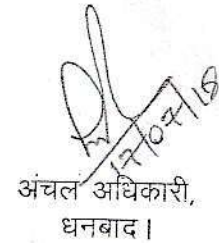 17/07/18
अंचल अधिकारी,
धनबाद।